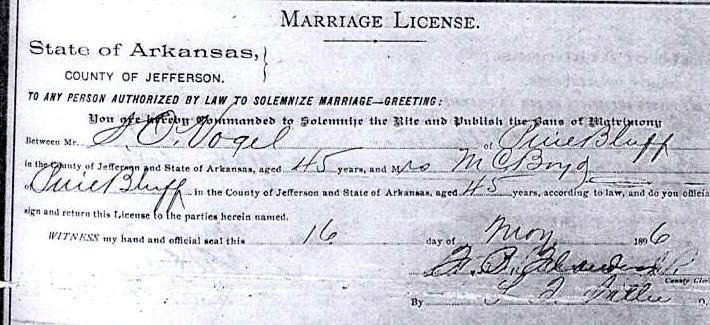 MARRIAGE LICENSE.
State of Arkansas,
COUNTY OF JEFFERSON.
TO ANY PERSON AUTHORIZED BY LAW TO SOLEMNIZE MARRIAGE—GREETING:
You are hereby Commanded to Solemnize the Rite and Publish the Bans of Matrimony
Between Mr. Vogel of Pine Bluff
in the County of Jefferson and State of Arkansas, aged 45 years, and Mrs M C Boyd
of Pine Bluff in the County of Jefferson and State of Arkansas, aged 45 years, according to law, and do you offici
sign and return this License to the parties herein named.
WITNESS my hand and official seal this 16 day of 1896
County Cler
By